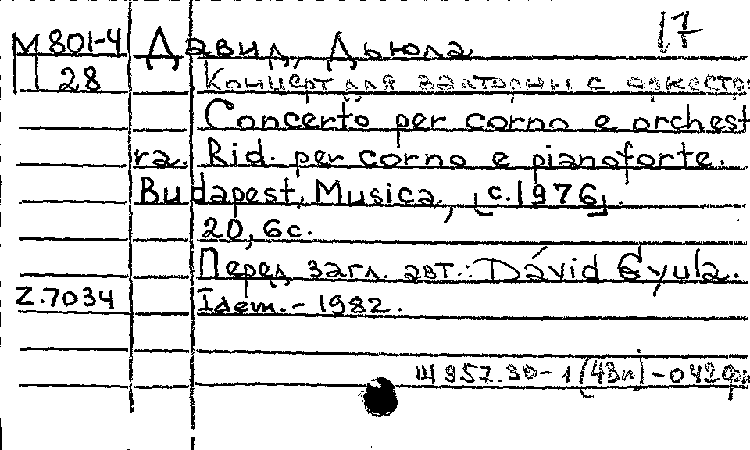 17
М 801-4 Давид, Дьюла
П 28 Концерт для валторны с оркестр
Concerto per corno e orchest
ra. Rid. per corno e pianoforte.
Budapest, Musica, [c.1976].
20, 6 с.
Перед загл. авт.: Dávid Gyula.
Z.7034 Idem. - 1982.
Щ957.30-1(4Вн)-042